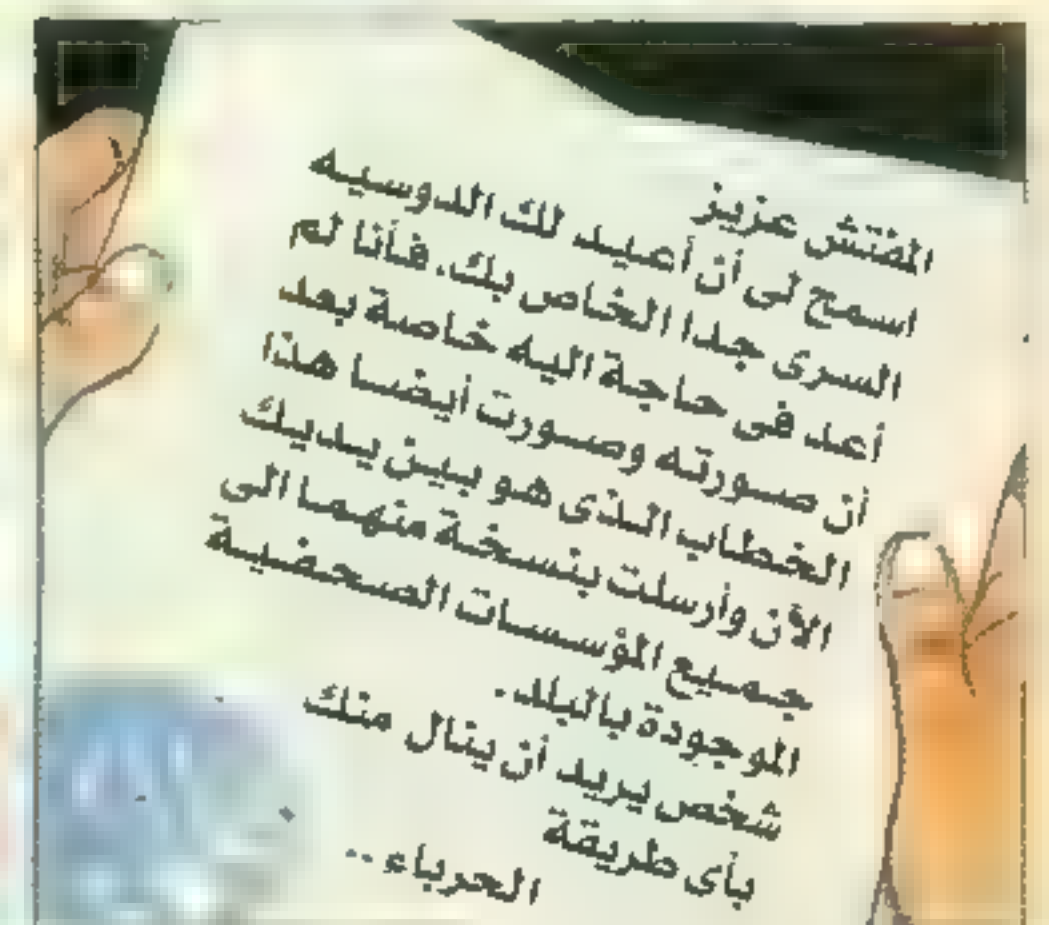 المفتش عزيز
اسمح لى أن أعيد لك الدوسيه
السرى جدا الخاص بك. فأنا لم
أعد فى حاجة اليه خاصة بعد
أن صورته وصورت أيضا هذا
الخطاب الذى هو بين يديك
الآن وأرسلت بنسخة منهما الى
جميع المؤسسات الصحفية
الموجودة بالبلد.
شخص يريد أن ينال منك
بأى طريقة
الحرباء..